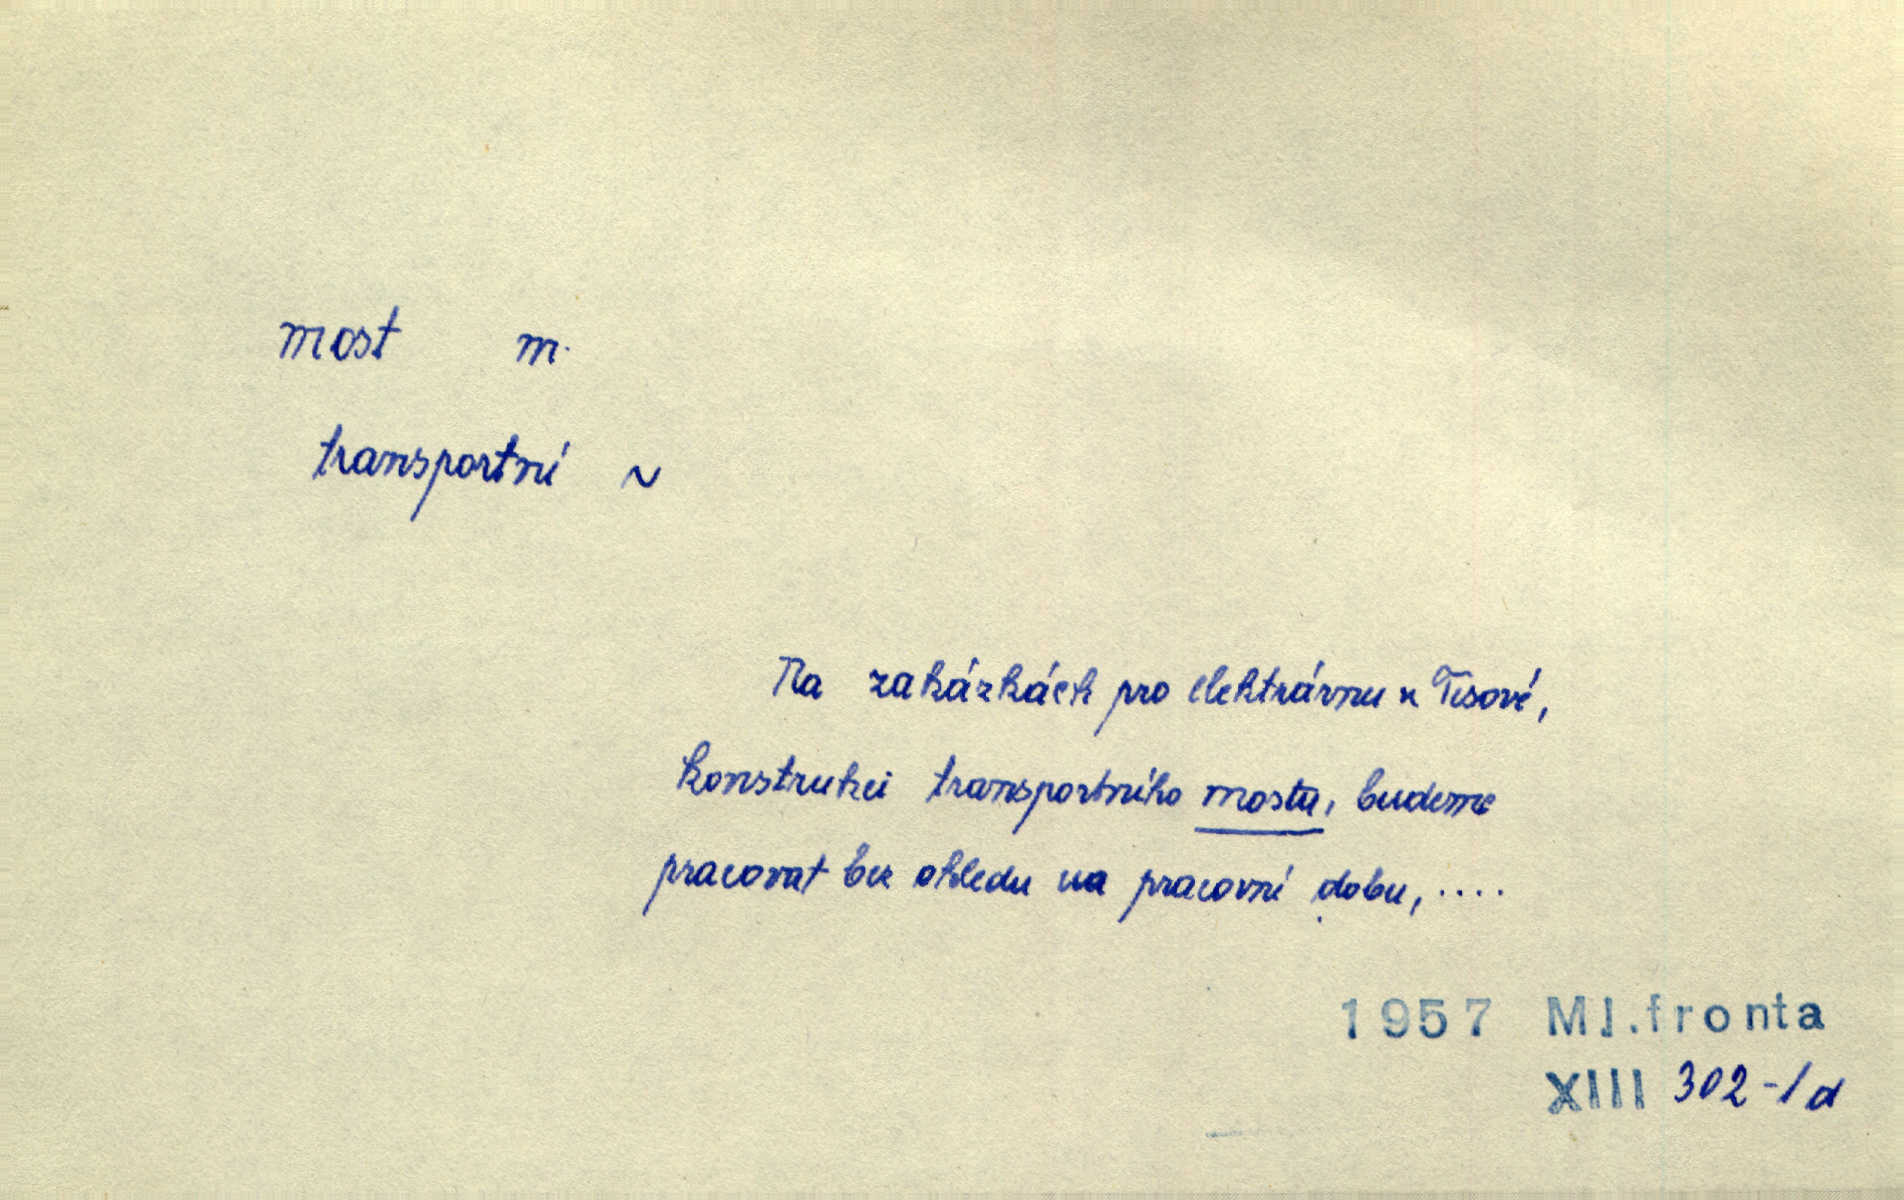 most m.
transportní ~
Na zakázkách pro elektrárnu v Tisové,
konstrukci transportního mostu, budeme
pracovat bez ohledu na pracovní dobu, ....
1957 Ml.fronta
XIII 302 -/d